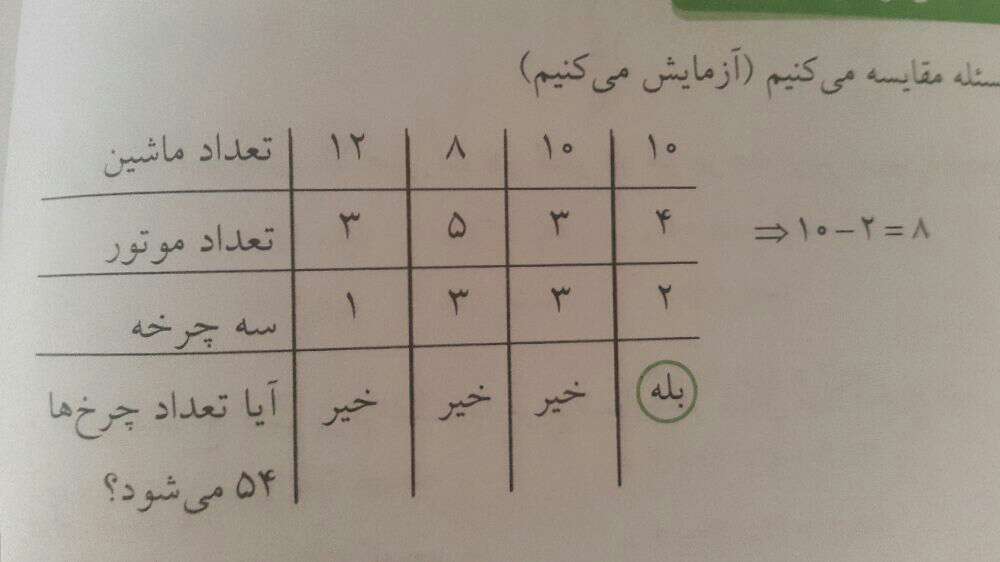 سئله مقایسه می‌کنیم (آزمایش می‌کنیم)
تعداد ماشین ۱۲ ۸ ۱۰ ۱۰
تعداد موتور ۳ ۵ ۳ ۴
⇒ ۱۰ − ۲ = ۸
سه چرخه ۱ ۳ ۳ ۲
آیا تعداد چرخ‌ها خیر خیر خیر بله
۵۴ می‌شود؟